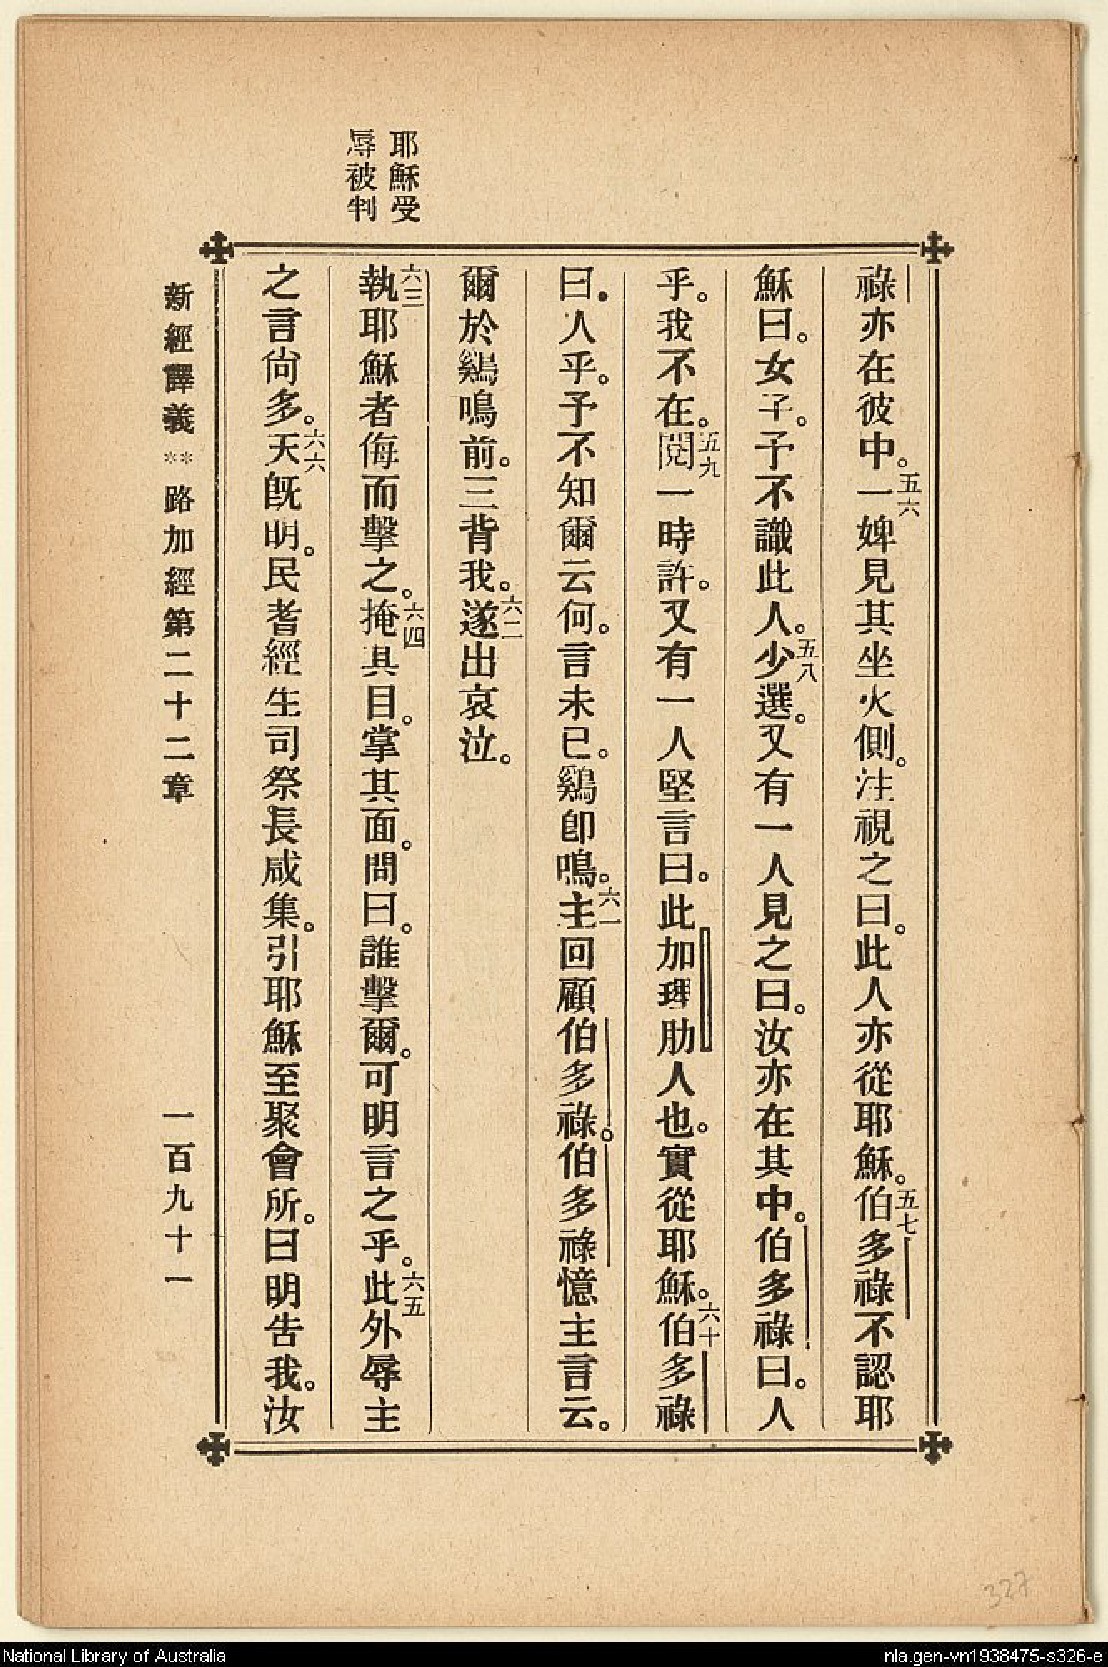 耶穌受
辱被判
祿亦在彼中。五六一婢見其坐火側。注視之曰。此人亦從耶穌。五七伯多祿不認耶
穌曰。女子。予不識此人。五八少選。又有一人見之曰。汝亦在其中。伯多祿曰。人
乎。我不在。五九閱一時許。又有一人堅言曰。此加理肋人也。實從耶穌。六十伯多祿
曰。人乎。予不知爾云何。言未已。鷄卽鳴。六一主回顧伯多祿。伯多祿憶主言云。
爾於鷄鳴前。三背我。六二遂出哀泣。
六三執耶穌者侮而擊之。六四掩其目。掌其面。問曰。誰擊爾。可明言之乎。六五此外辱主
之言尙多。六六天旣明。民耆經生司祭長咸集。引耶穌至聚會所。曰明告我。汝
新經譯義 ** 路加經第二十二章 一百九十一
327
National Library of Australia
nla.gen-vn1938475-s326-e